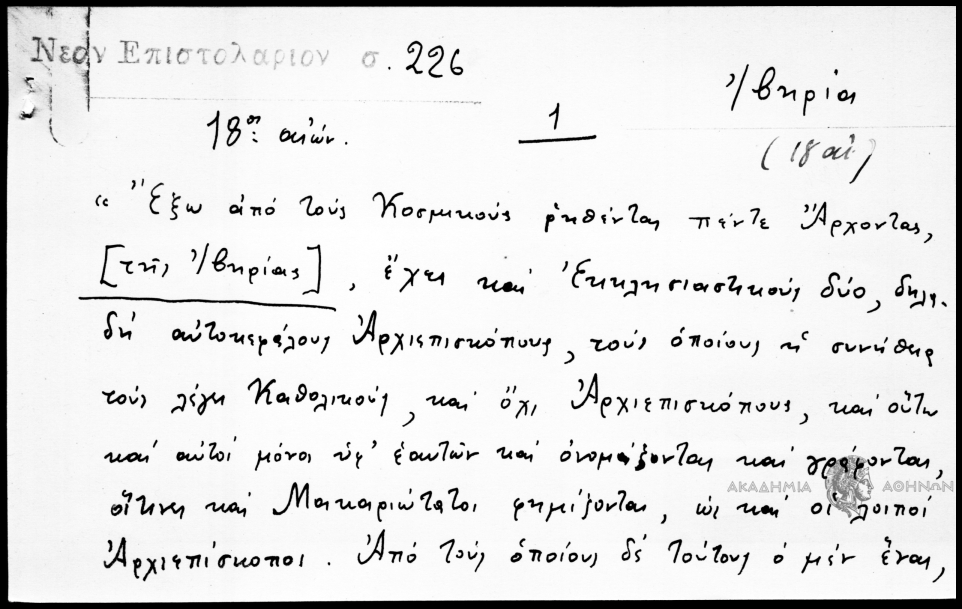 Νεον Επιστολαριον σ. 226
Ἰβηρία
18ος: αἰών.
1
(18 αἰ)
« Ἔξω ἀπό τούς Κοσμικούς ῥηθέντας πέντε Ἄρχοντας,
[τῆς Ἰβηρίας], ἔχει καί Ἐκκλησιαστικούς δύο, δηλα-
δή αὐτοκεφάλους Ἀρχιεπισκόπους, τούς ὁποίους ἡ συνήθεια
τούς λέγει Καθολικούς, καί ὄχι Ἀρχιεπισκόπους, καί οὕτω
καί αὐτοί μόνοι ὑφ' ἑαυτῶν καί ὀνομάζονται καί γράφονται,
οἵτινες καί Μακαριώτατοι φημίζονται, ὡς καί οἱ λοιποί
ΑΚΑΔΗΜΙΑ ΑΘΗΝΩΝ
Ἀρχιεπίσκοποι. Ἀπό τούς ὁποίους δέ τούτους ὁ μέν ἕνας,